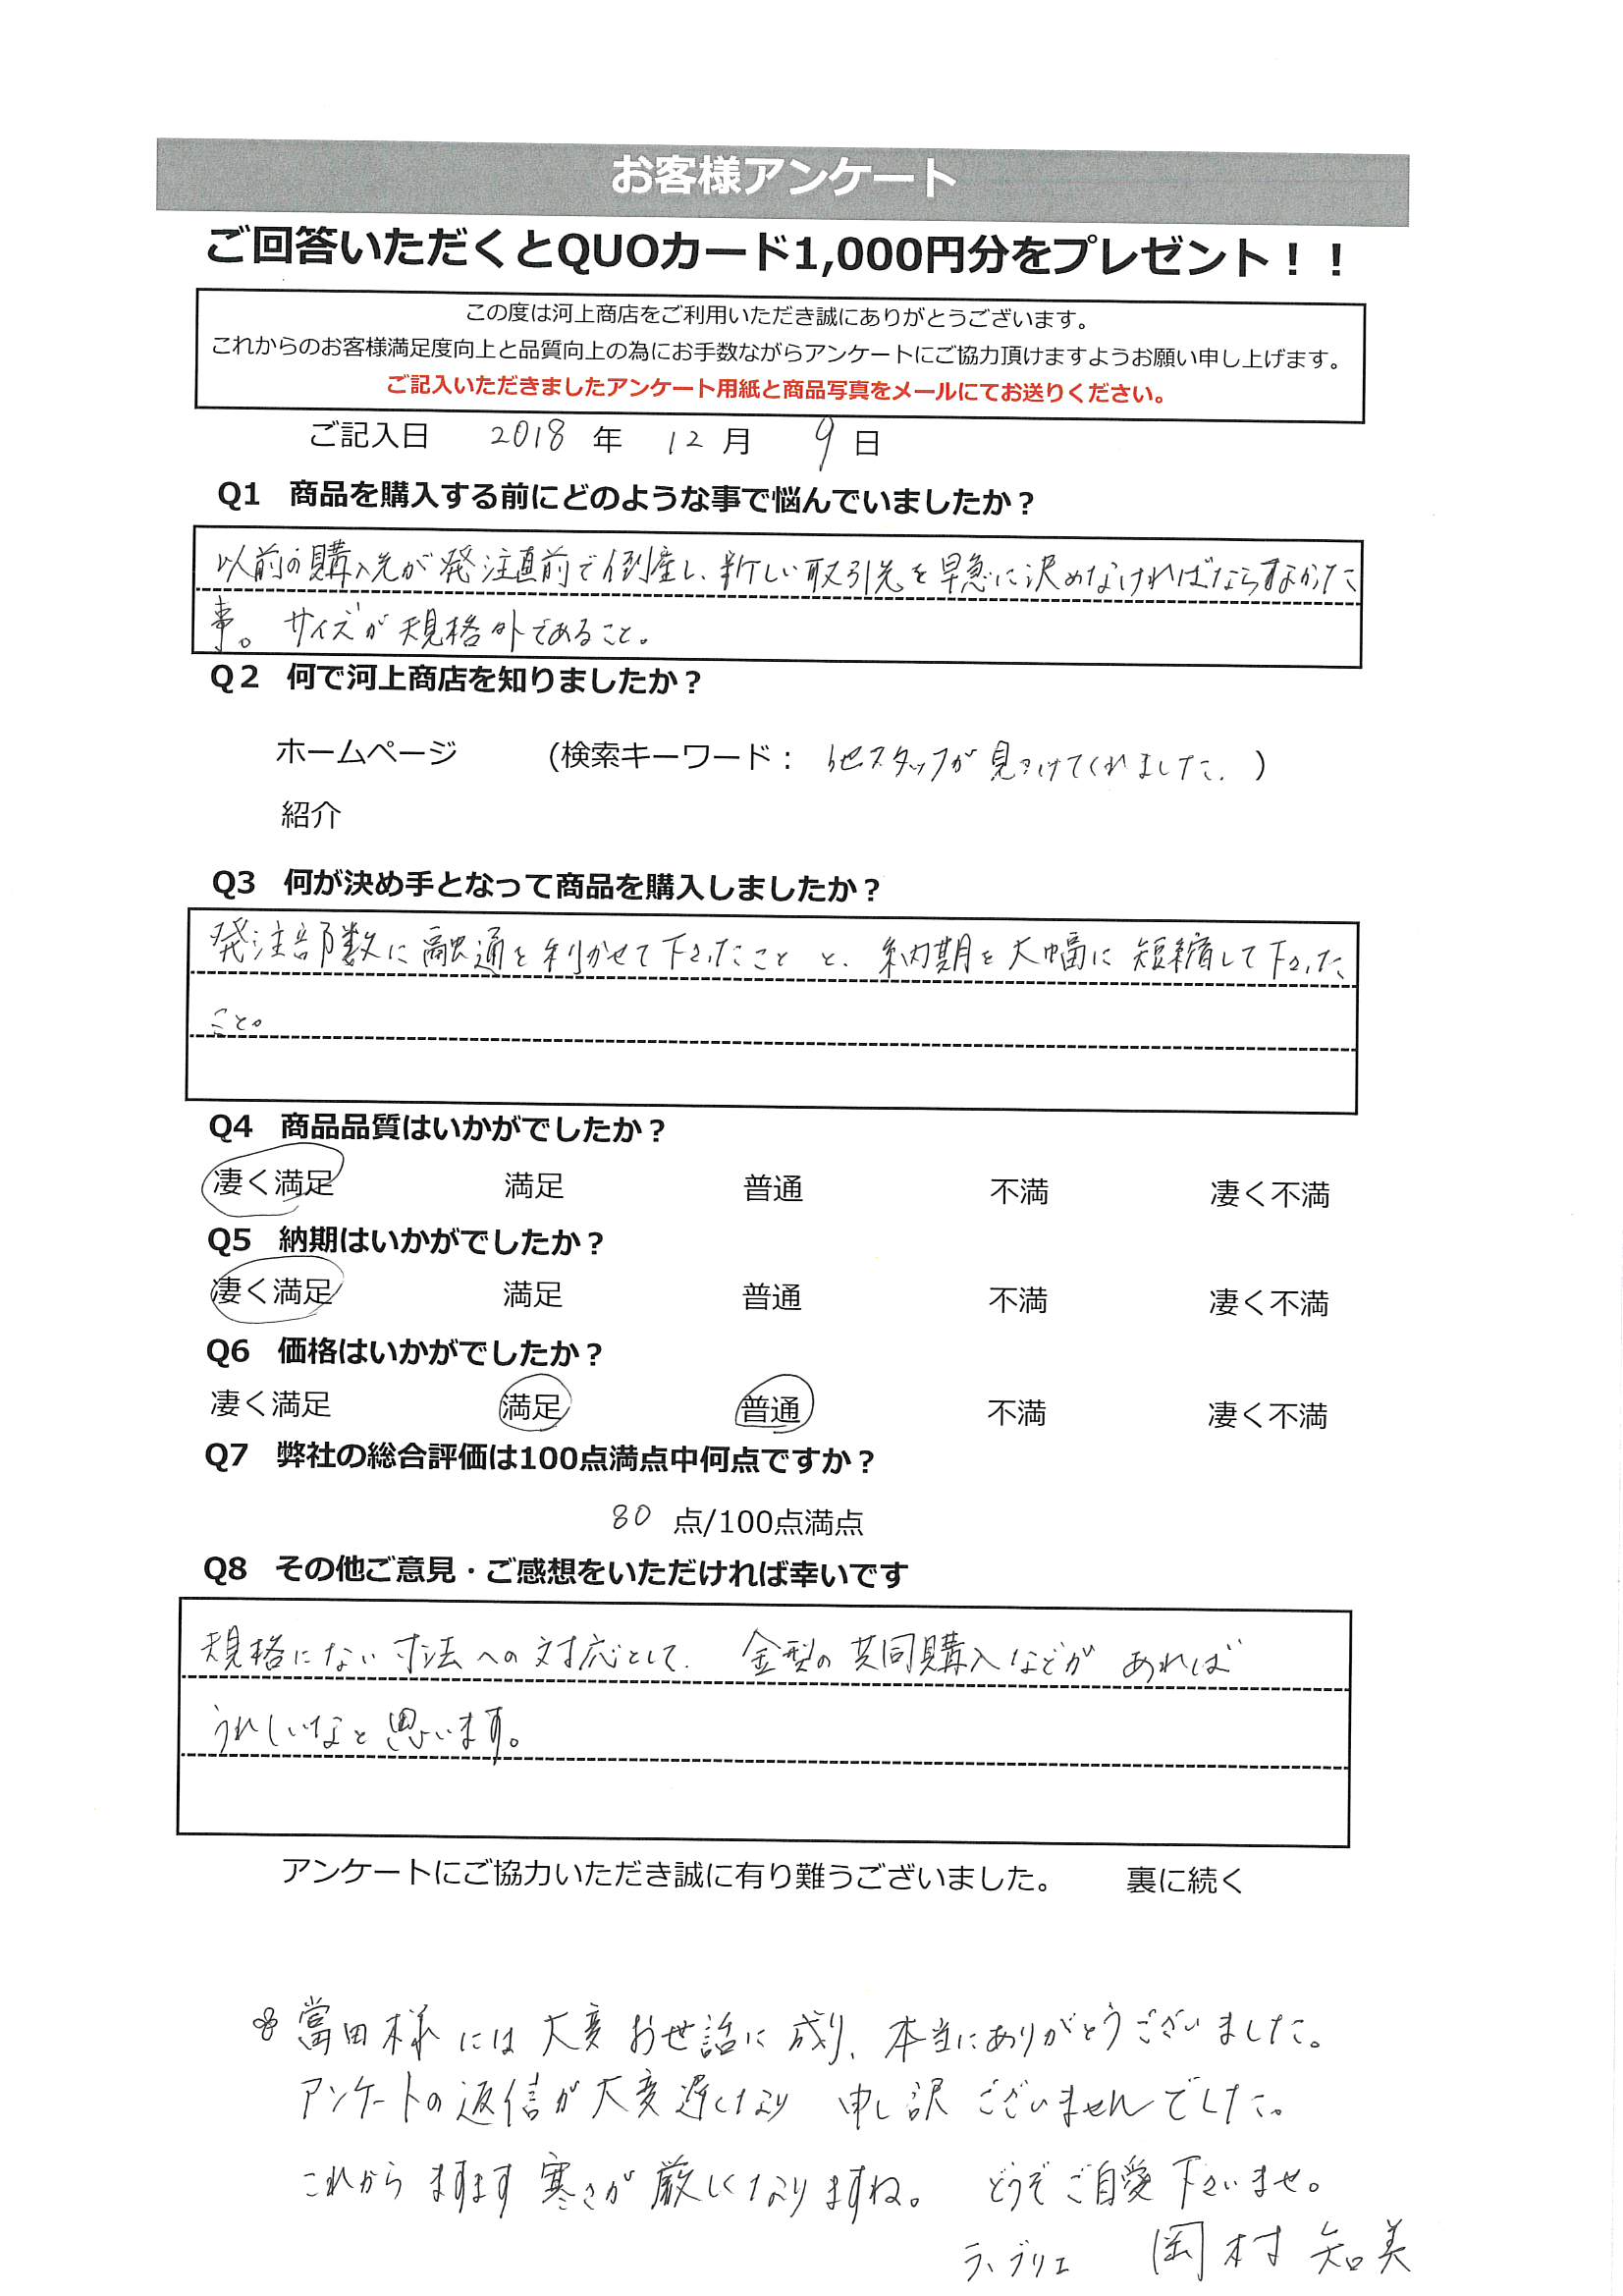 お客様アンケート
ご回答いただくとQUOカード1,000円分をプレゼント！！
この度は河上商店をご利用いただき誠にありがとうございます。
これからのお客様満足度向上と品質向上の為にお手数ながらアンケートにご協力頂けますようお願い申し上げます。
ご記入いただきましたアンケート用紙と商品写真をメールにてお送りください。
ご記入日 2018 年 12 月 9 日
Q1 商品を購入する前にどのような事で悩んでいましたか？
以前の購入先が発注直前で倒産し、新しい取引先を早急に決めなければならなかった
事。サイズが規格外であること。
Q2 何で河上商店を知りましたか？
ホームページ (検索キーワード： 他スタッフが見つけてくれました. )
紹介
Q3 何が決め手となって商品を購入しましたか？
発注部数に融通を利かせて下さったことと、納期を大幅に短縮して下さった
こと。
Q4 商品品質はいかがでしたか？
凄く満足 満足 普通 不満 凄く不満
Q5 納期はいかがでしたか？
凄く満足 満足 普通 不満 凄く不満
Q6 価格はいかがでしたか？
凄く満足 満足 普通 不満 凄く不満
Q7 弊社の総合評価は100点満点中何点ですか？
80 点/100点満点
Q8 その他ご意見・ご感想をいただければ幸いです
規格にない寸法への対応として、金型の共同購入などがあれば
うれしいなと思います。
アンケートにご協力いただき誠に有り難うございました。 裏に続く
當田様には大変お世話に成り、本当にありがとうございました。
アンケートの返信が大変遅くなり 申し訳ございませんでした。
これからますます寒さが厳しくなりますね。 どうぞご自愛下さいませ。
ラ、ブリエ 岡村 知美